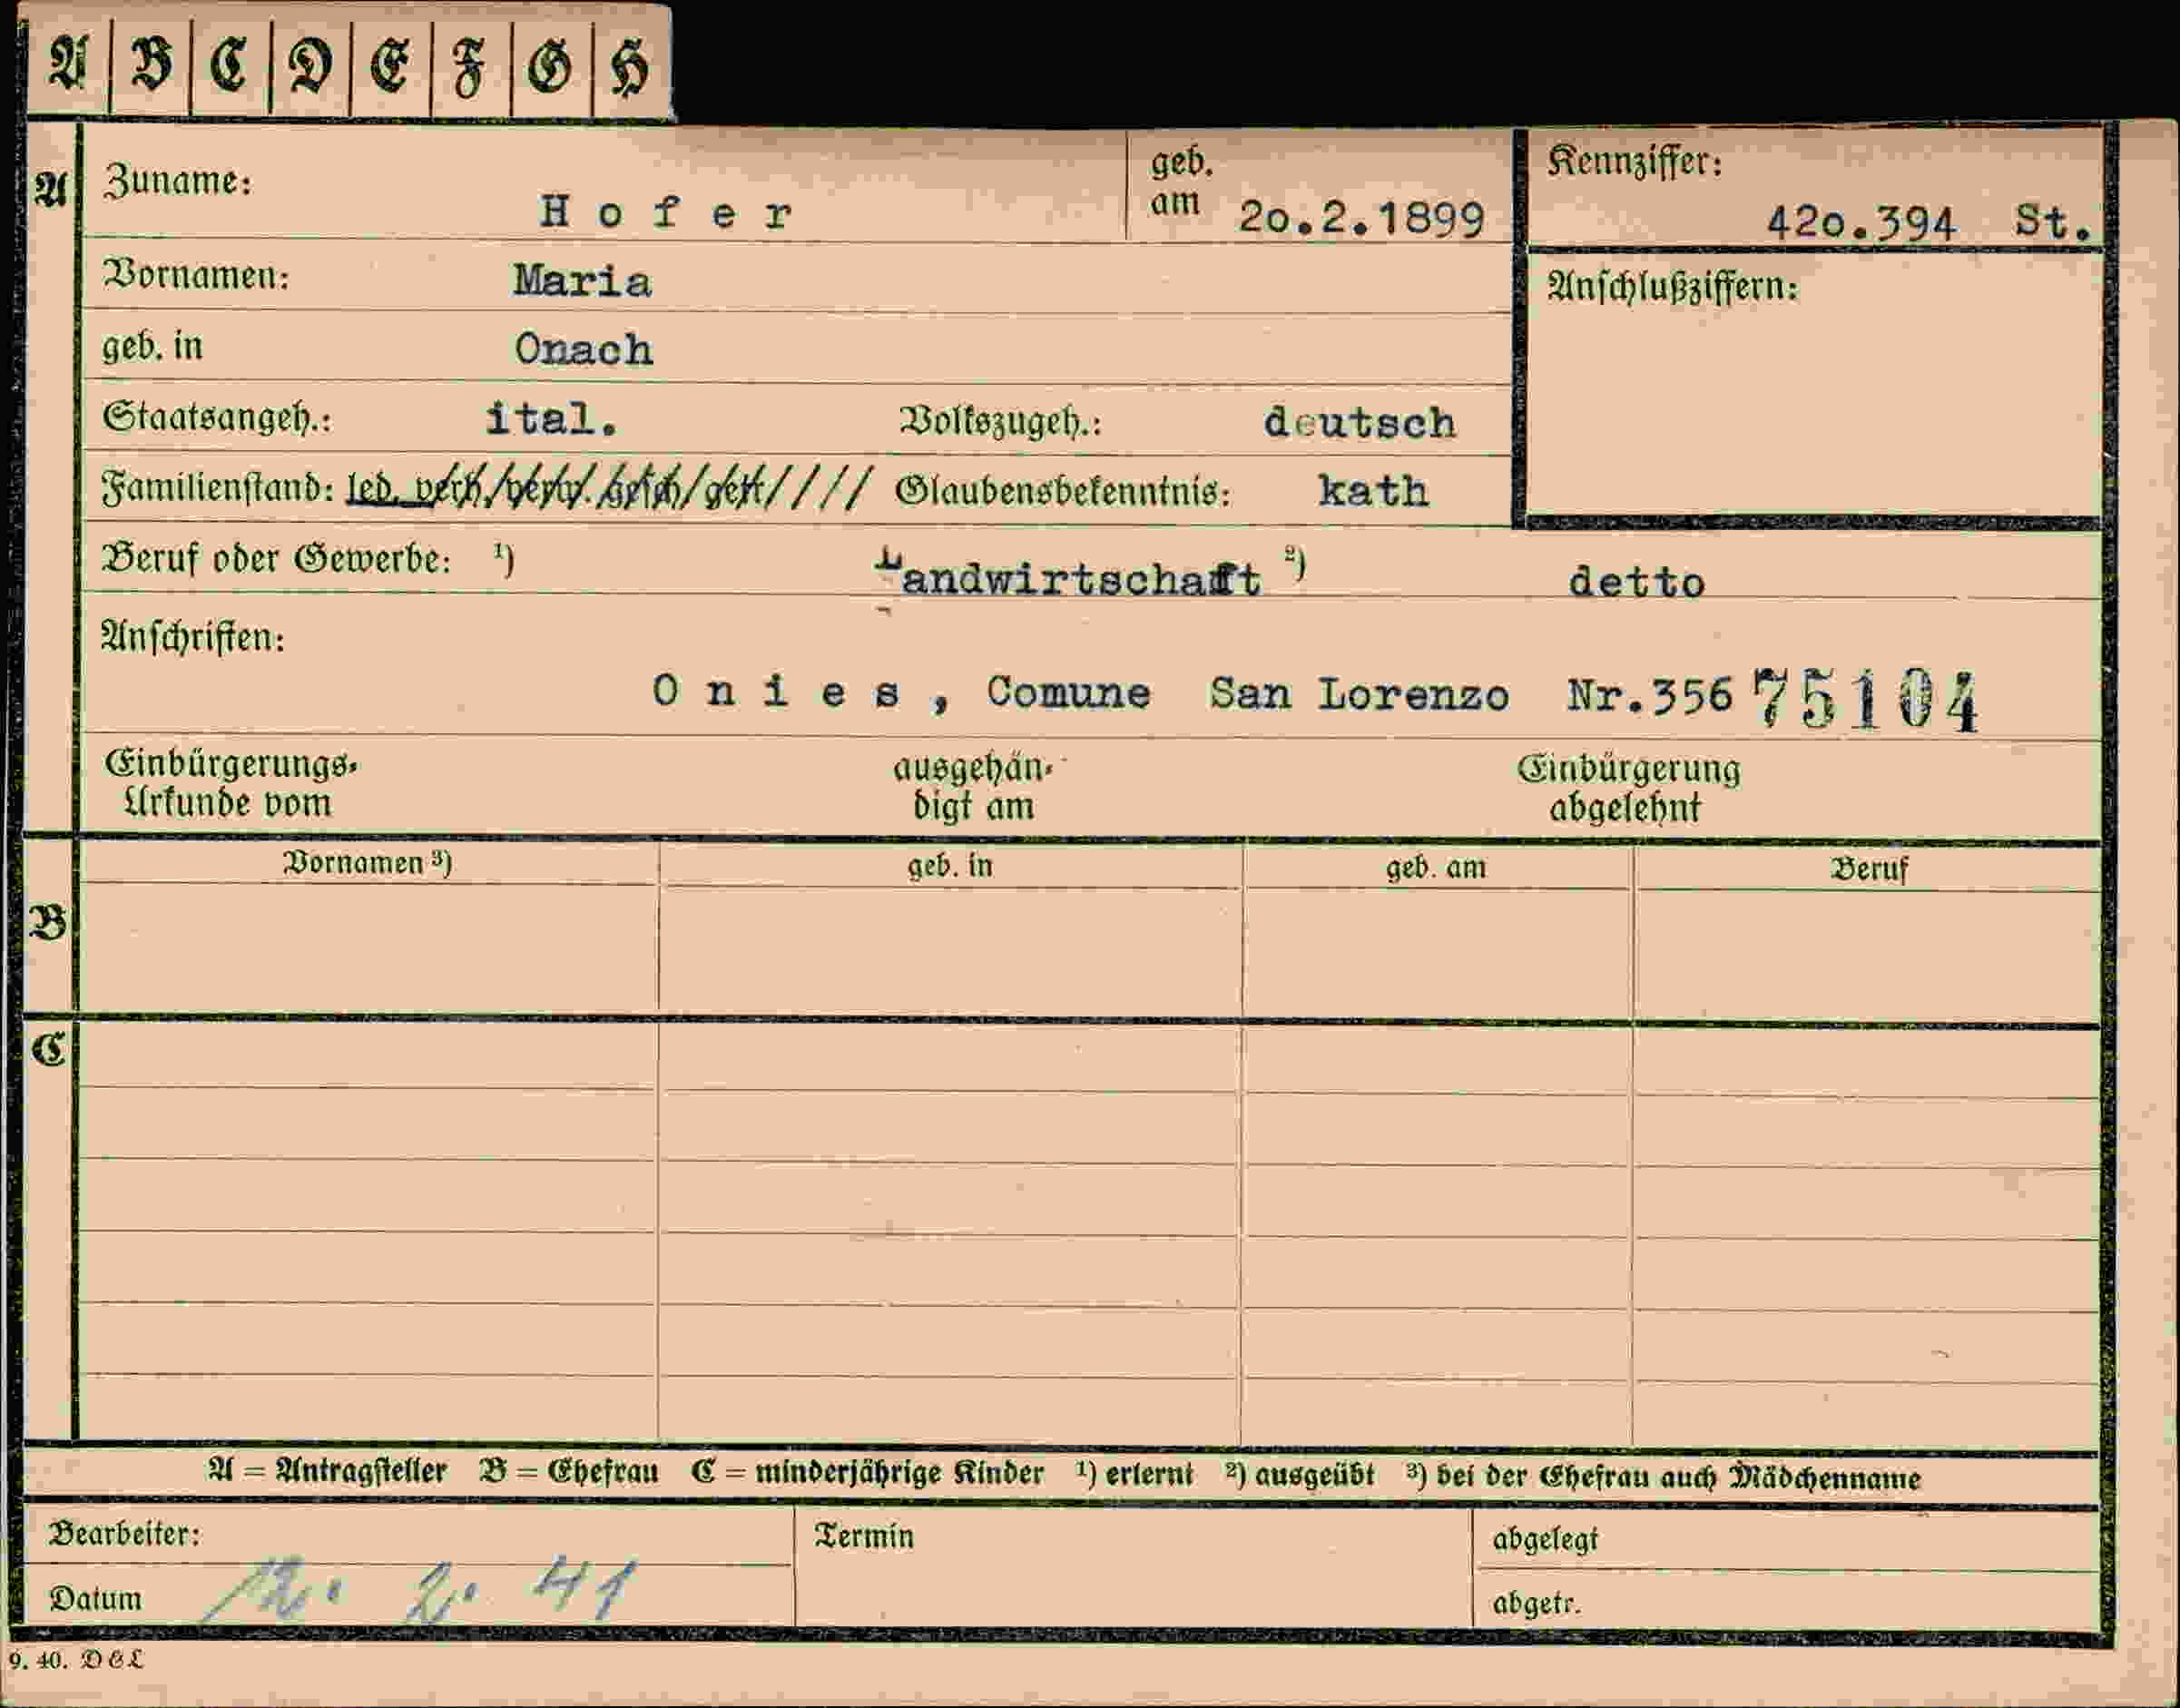 A B C D E F G H
A Zuname: H o f e r geb. am 2o.2.1899 Kennziffer: 42o.394 St.
Vornamen: Maria Anschlußziffern:
geb. in Onach
Staatsangeh.: ital. Volkszugeh.: deutsch
Familienstand: led. verh. verw. gesch. getr. //// Glaubensbekenntnis: kath
Beruf oder Gewerbe: ¹) Landwirtschaft ²) detto
Anschriften:
O n i e s , Comune San Lorenzo Nr.356 75104
Einbürgerungs- ausgehän- Einbürgerung
Urkunde vom digt am abgelehnt
Vornamen ³) geb. in geb. am Beruf
B
C
A = Antragsteller B = Ehefrau C = minderjährige Kinder ¹) erlernt ²) ausgeübt ³) bei der Ehefrau auch Mädchenname
Bearbeiter: Termin abgelegt
Datum 12. 2. 41 abgetr.
9. 40. DEL